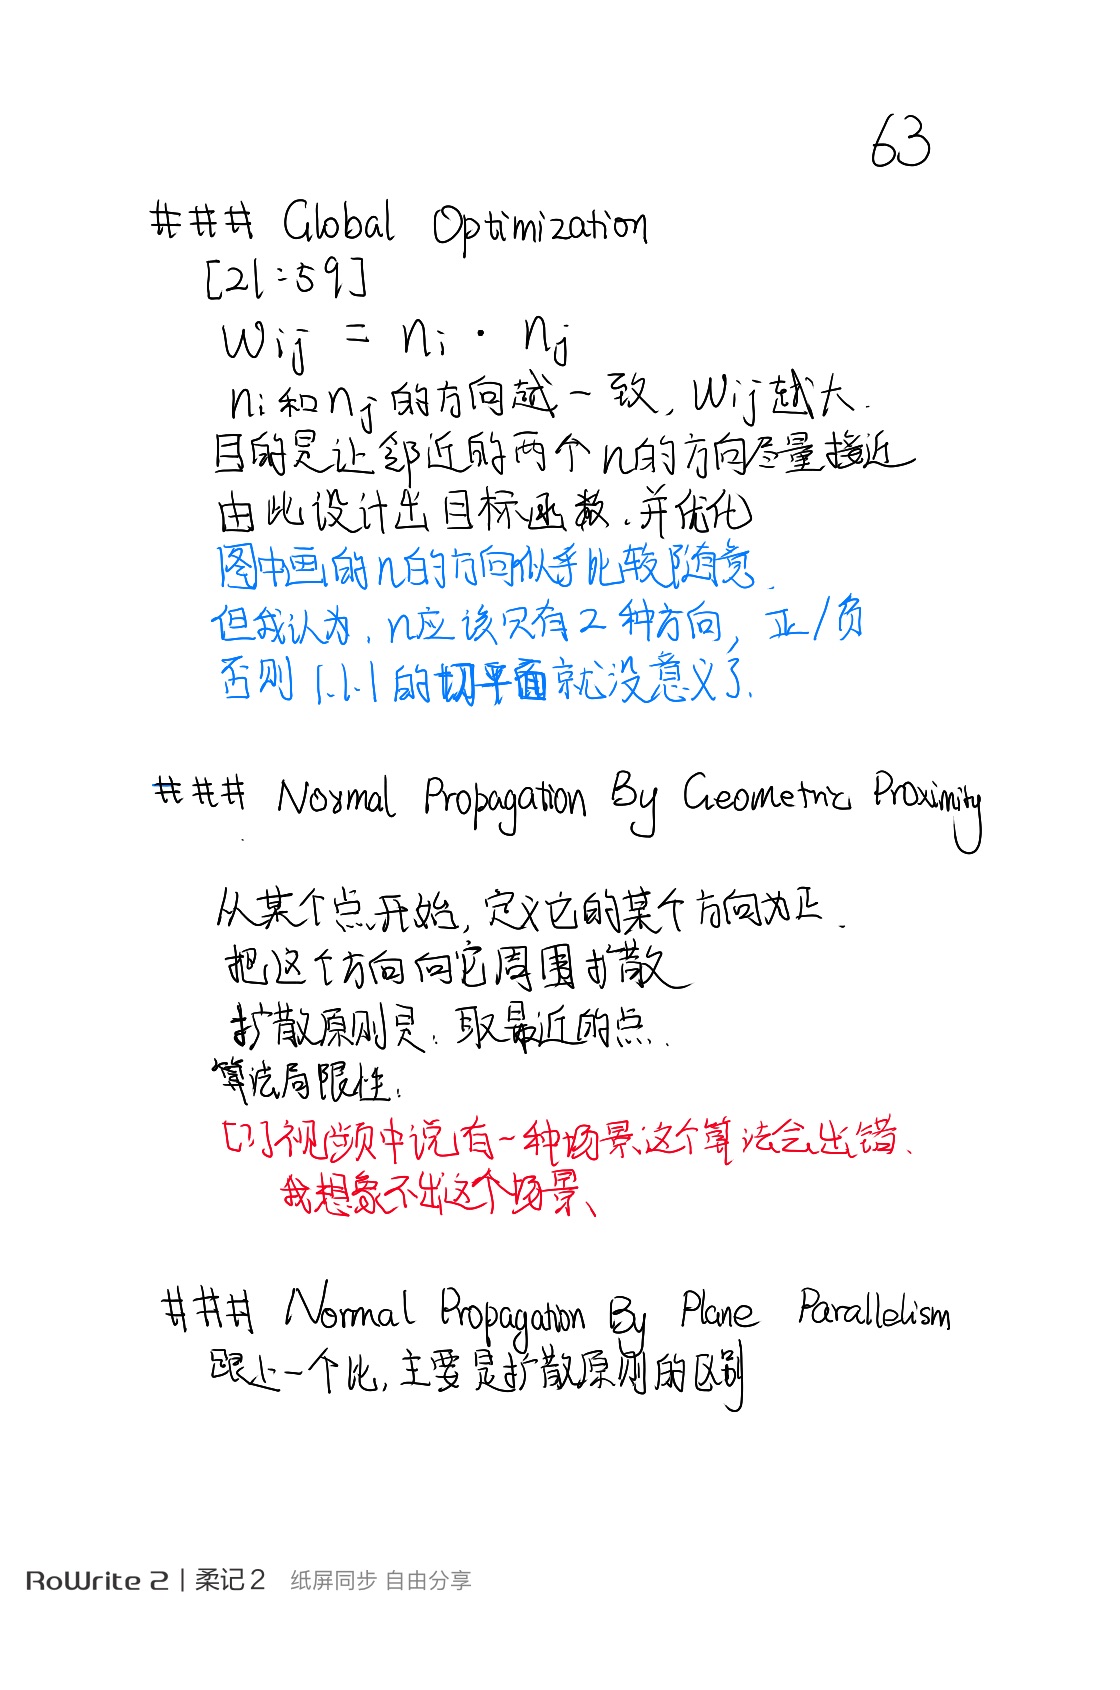 63
### Global Optimization
[21:59]
Wij = ni · nj
ni和nj的方向越一致, Wij越大.
目的是让邻近的两个n的方向尽量接近
由此设计出目标函数.并优化
图中画的n的方向似乎比较随意.
但我认为.n应该只有2种方向, 正/负
否则1.1.1的切平面就没意义了.
### Normal Propagation By Geometric Proximity
从某个点开始,定义它的某个方向为正.
把这个方向向它周围扩散
扩散原则是.取最近的点.
算法局限性.
[?]视频中说有一种场景这个算法会出错.
我想象不出这个场景、
### Normal Propagation By Plane Parallelism
跟上一个比,主要是扩散原则的区别
RoWrite 2 | 柔记2 纸屏同步 自由分享